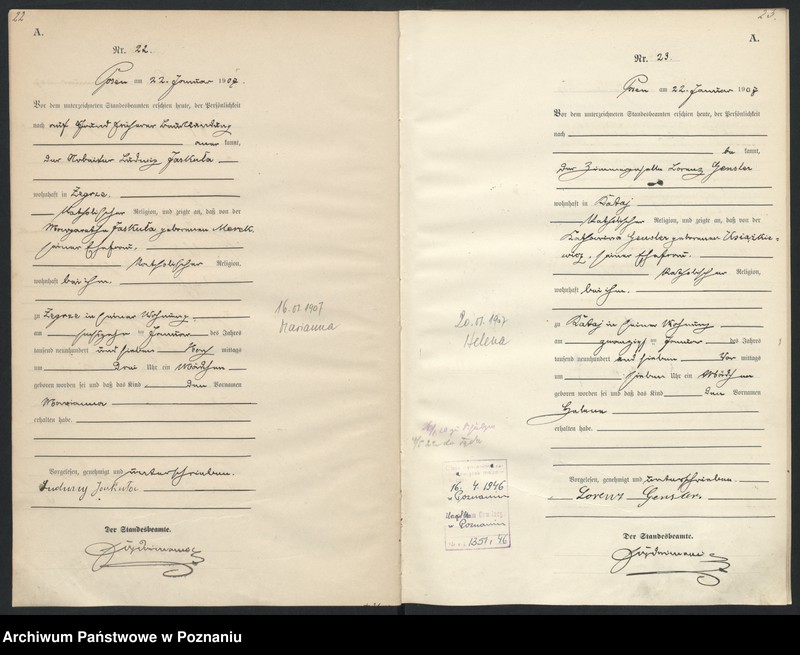 22
A.
Nr. 22.
Posen am 22. Januar 1907.
Vor dem unterzeichneten Standesbeamten erschien heute, der Persönlichkeit
nach auf Grund früherer
kannt,
der Arbeiter Ludwig Jaskuła
wohnhaft in Zegrze.
katholischer Religion, und zeigte an, daß von der
Margaretha Jaskuła geborenen
seiner Ehefrau,
katholischer Religion,
wohnhaft bei ihm.
zu Zegrze in seiner Wohnung
am sechzehn ten Januar des Jahres
tausend neunhundert und sieben Nach mittags
um drei Uhr ein Mädchen
geboren worden sei und daß das Kind den Vornamen
Marianna
erhalten habe.
Vorgelesen, genehmigt und unterschrieben.
Jaskuła
Der Standesbeamte.
16.01.1907
Marianna
23.
A.
Nr. 23.
Posen am 22. Januar 1907
Vor dem unterzeichneten Standesbeamten erschien heute, der Persönlichkeit
nach
be kannt,
der Zimmergeselle Lorenz Gensler
wohnhaft in Rataj
katholischer Religion, und zeigte an, daß von der
Katharina Gensler geborenen Książkie-
wicz, seiner Ehefrau.
katholischer Religion,
wohnhaft bei ihm.
zu Rataj in seiner Wohnung
am zwanzig ten Januar des Jahres
tausend neunhundert und sieben Vor mittags
um sieben Uhr ein Mädchen
geboren worden sei und daß das Kind den Vornamen
Helena
erhalten habe.
Vorgelesen, genehmigt und unterschrieben.
Lorenz Gensler.
Der Standesbeamte.
20.01.1907
Helena
16. 4. 1946
w Poznaniu
w Poznaniu
1351/46
Archiwum Państwowe w Poznaniu